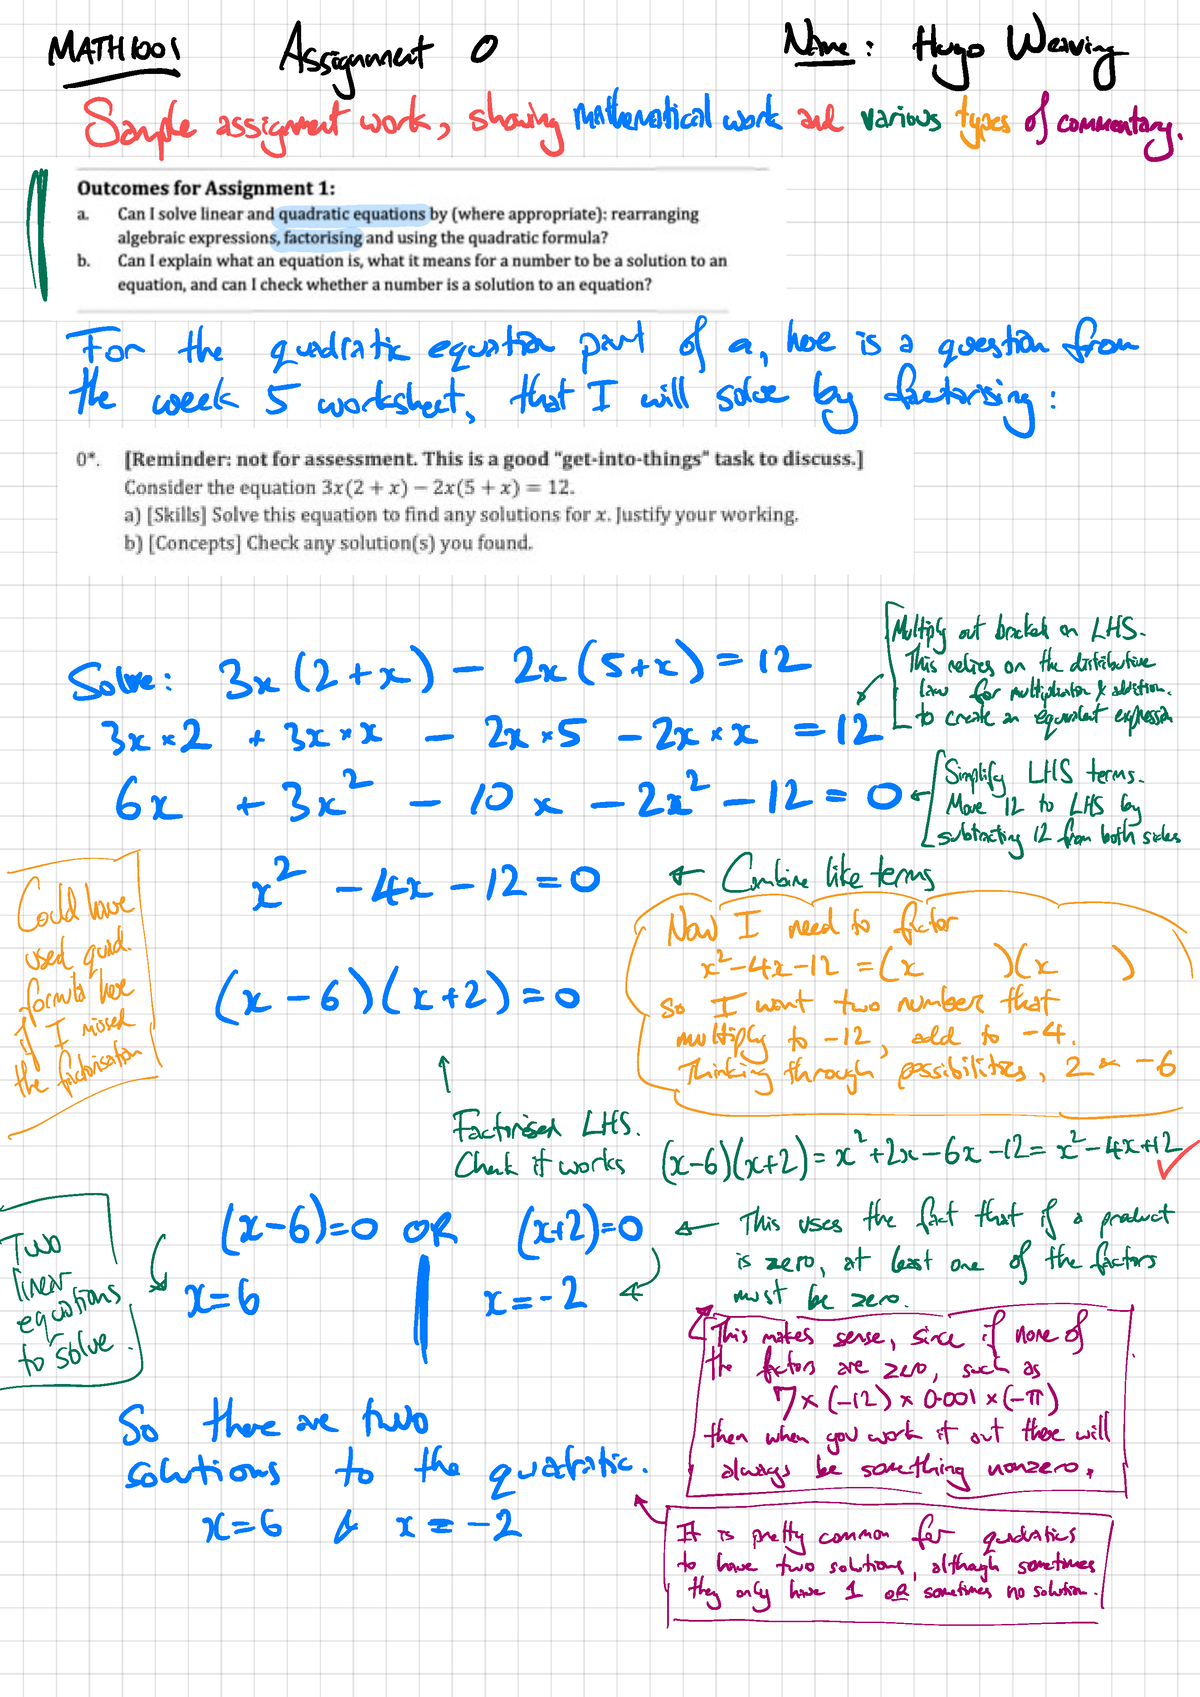 MATH1001 Assignment 0 Name: Hugo Weaving
Sample assignment work, showing mathematical work and various types of commentary.
Outcomes for Assignment 1:
a. Can I solve linear and quadratic equations by (where appropriate): rearranging
algebraic expressions, factorising and using the quadratic formula?
b. Can I explain what an equation is, what it means for a number to be a solution to an
equation, and can I check whether a number is a solution to an equation?
For the quadratic equation part of a, here is a question from
the week 5 worksheet, that I will solve by factorising:
0*. [Reminder: not for assessment. This is a good "get-into-things" task to discuss.]
Consider the equation 3x(2 + x) − 2x(5 + x) = 12.
a) [Skills] Solve this equation to find any solutions for x. Justify your working.
b) [Concepts] Check any solution(s) you found.
Solve: 3x(2+x) − 2x(5+x) = 12
3x×2 + 3x×x − 2x×5 − 2x×x = 12
Multiply out brackets on LHS.
This relies on the distributive
law for multiplication & addition.
to create an equivalent expression
6x + 3x² − 10x − 2x² − 12 = 0
Simplify LHS terms.
Move 12 to LHS by
subtracting 12 from both sides
x² − 4x − 12 = 0 ← Combine like terms
Could have
used quad.
formula here
if I missed
the factorisation
(x−6)(x+2) = 0
Now I need to factor
x²−4x−12 = (x )(x )
So I want two number that
multiply to −12, add to −4.
Thinking through possibilities, 2 & −6
↑
Factorised LHS.
Check it works (x−6)(x+2) = x²+2x−6x−12 = x²−4x+12 ✓
(x−6)=0 OR (x+2)=0
← This uses the fact that if a product
is zero, at least one of the factors
must be zero.
Two
linear
equations
to solve.
x=6 x=−2
This makes sense, since if none of
the factors are zero, such as
7×(−12)×0.001×(−π)
then when you work it out there will
always be something nonzero.
So there are two
solutions to the quadratic.
x=6 & x=−2
It is pretty common for quadratics
to have two solutions, although sometimes
they only have 1 OR sometimes no solution.